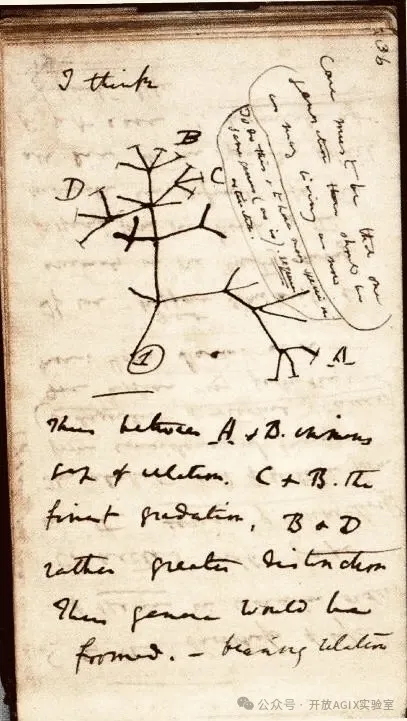 36
I think
Case must be that one
generation then should be
as many living as now
To do this & to have many species in
same genus (as is) requires
extinction.
B
C
D
A
1
Thus between A & B. immense
gap of relation. C & B. the
finest gradation, B & D
rather greater distinction
Thus genera would be
formed. — bearing relation
公众号 · 开放AGIX实验室